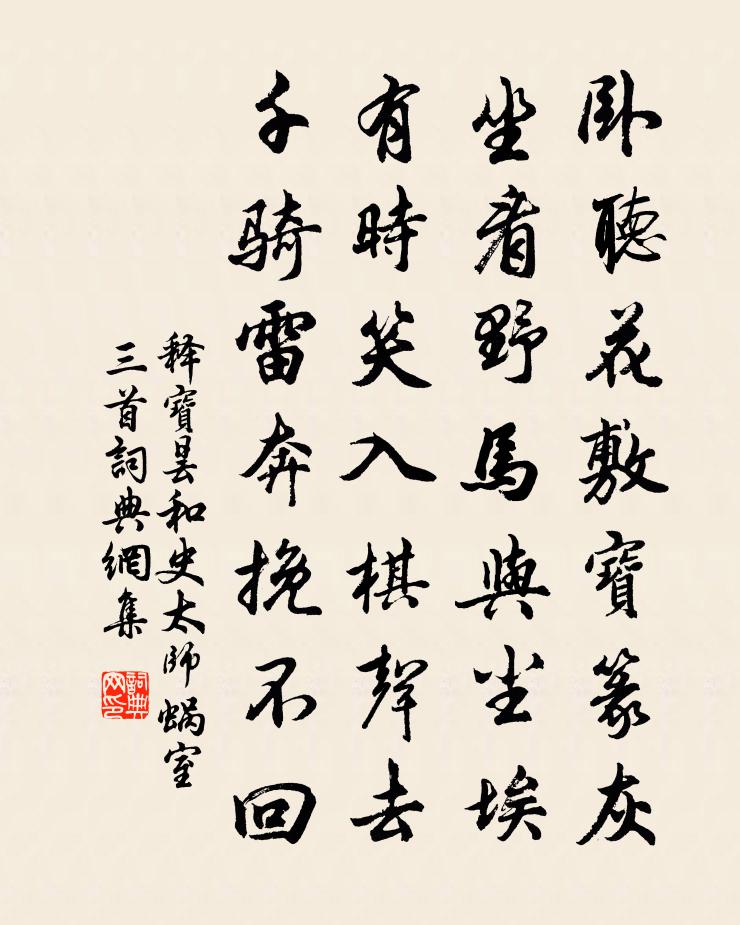 卧聽花敷寶篆灰
坐看野馬與尘埃
有時笑入棋聲去
千騎雷奔挽不回
释寶曇和史太師蝸室
三首詞典網集
詞典网印